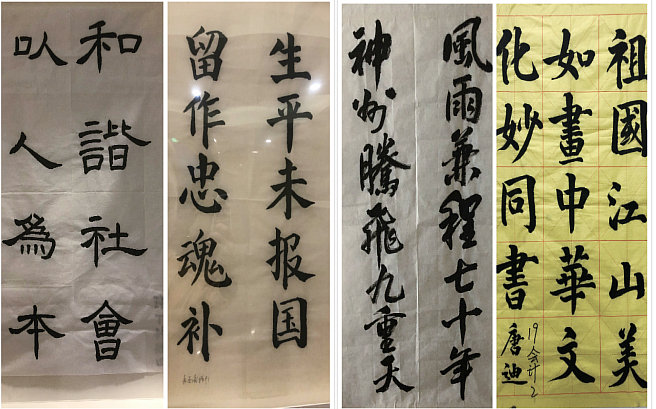 和諧社會
以人為本
生平未报国
留作忠魂补
風雨兼程七十年
神州騰飛九重天
祖國江山美
如畫中華文
化妙同書
19会计2
唐迪